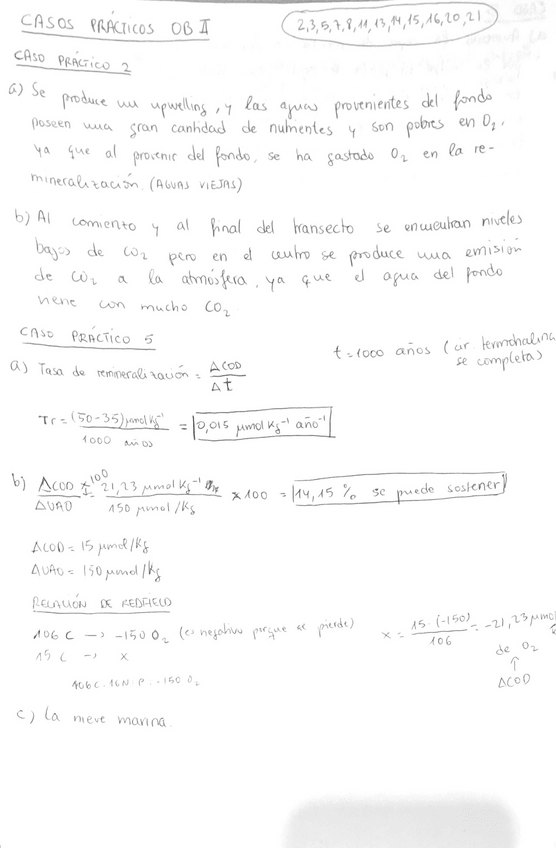 CASOS PRÁCTICOS OB II
2,3,5,7,8,11,13,14,15,16,20,21
CASO PRÁCTICO 2
a) Se produce un upwelling, y las aguas provenientes del fondo
poseen una gran cantidad de nutrientes y son pobres en O2,
ya que al provenir del fondo, se ha gastado O2 en la re-
mineralización. (AGUAS VIEJAS)
b) Al comienzo y al final del transecto se encuentran niveles
bajos de CO2 pero en el centro se produce una emisión
de CO2 a la atmósfera, ya que el agua del fondo
viene con mucho CO2
CASO PRÁCTICO 5
t = 1000 años (cir termohalina
se completa)
a) Tasa de remineralización = ΔCOD / Δt
Tr = (50-35) µmol kg⁻¹ / 1000 años = 0,015 µmol kg⁻¹ año⁻¹
b) ΔCOD / ΔUAO x100 = 21,23 µmol kg⁻¹ / 150 µmol/kg x 100 = 14,15 % se puede sostener
ΔCOD = 15 µmol/kg
ΔUAO = 150 µmol/kg
RELACIÓN DE REDFIELD
106 C → -150 O2 (es negativo porque se pierde)
15 C → x
x = 15·(-150) / 106 = -21,23 µmol
de O2
↑
ΔCOD
106C:16N:P:-150 O2
c) La nieve marina.